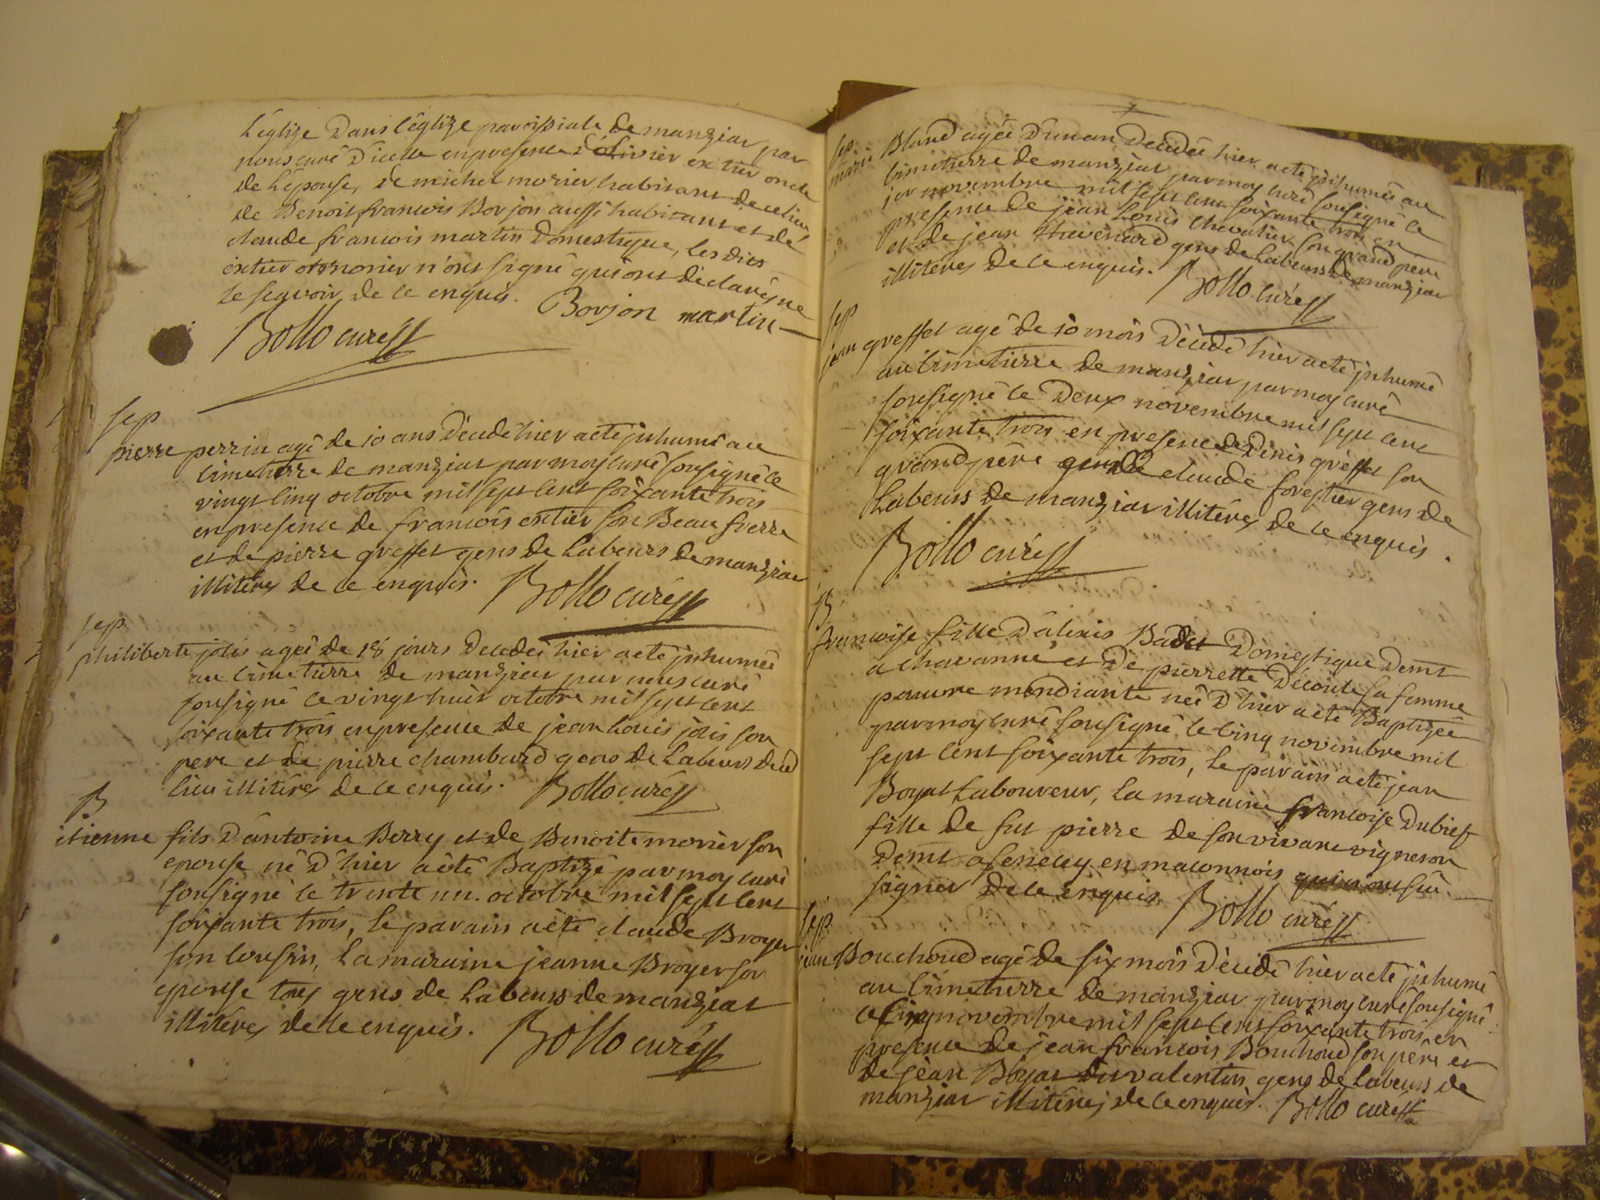 l'église Dans l'église paroissiale de manziat par
nous curé d'icelle en presence d'olivier extier oncle
de l'épouse, de michel morier habitant de ce lieu
de Benoit francois Borjon aussi habitant et de
claude francois martin Domestique, les dits
extier et morier n'ont signé qui ont declaré ne
le scavoir de ce enquis. Borjon martin
Bollo curé
sep
pierre perrin agé de 10 ans décédé hier a eté inhumé au
cimetierre de manziat par moy curé sousigné le
vingt cinq octobre mil sept cent soixante trois
en presence de francois extier son Beau frerre
et de pierre greffet gens de Labeurs de manziat
illitérés de ce enquis. Bollo curé
sep
philiberte jolis ageé de 18 jours decedeé hier a eté inhumeé
au cimetierre de manziat par nous curé
sousigné le vingt huit octobre mil sept cent
soixante trois en presence de jean Louis jolis son
pere et de pierre chambard gens de Labeurs dud
lieu illitérés de ce enquis. Bollo curé
B
etienne fils d'antoine Berry et de Benoite morier son
epouse né d'hier a été Baptizé par moy curé
sousigné le trente un octobre mil sept cent
soixante trois, le parain a eté claude Broyer
son cousin, la maraine jeanne Broyer son
epouse tous gens de Labeurs de manziat
illitérés de ce enquis. Bollo curé
sep
marie Bland ageé d'un an Decedeé hier a eté inhumeé au
cimetierre de manziat par moy curé sousigné le
1er novembre mil sept cent soixante trois en
presence de jean Louis chevalier son grand père
et de jean thevenard gens de Labeurs de manziat
illitérés de ce enquis. Bollo curé
sep
jean greffet agé de 10 mois Décédé hier a eté inhumé
au cimetierre de manziat par moy curé
sousigné le Deux novembre mil sept cent
soixante trois en presence de Denis greffet son
grand père et de claude forestier gens de
Labeurs de manziat illitérés de ce enquis.
Bollo curé
B
francoise fille D'alexis Badet Domestique Demt
a chavanne et De pierrette Decoute sa femme
pauvre mendiante neé D'hier a eté Baptizeé
par moy curé sousigné le cinq novembre mil
sept cent soixante trois, le parain a eté jean
Boyat Laboureur, la maraine francoise Dubief
fille de fut pierre de son vivant vigneron
Demt a senecey en maconnois qui n'ont sù
signer de ce enquis. Bollo curé
sep
jean Bouchoud agé de six mois Décédé hier a eté inhumé
au cimetierre de manziat par moy curé sousigné
ce cinq novembre mil sept cent soixante trois en
presence de jean francois Bouchoud son père et
de jean Boyat dit valentin gens de Labeurs de
manziat illitérés de ce enquis. Bollo curé